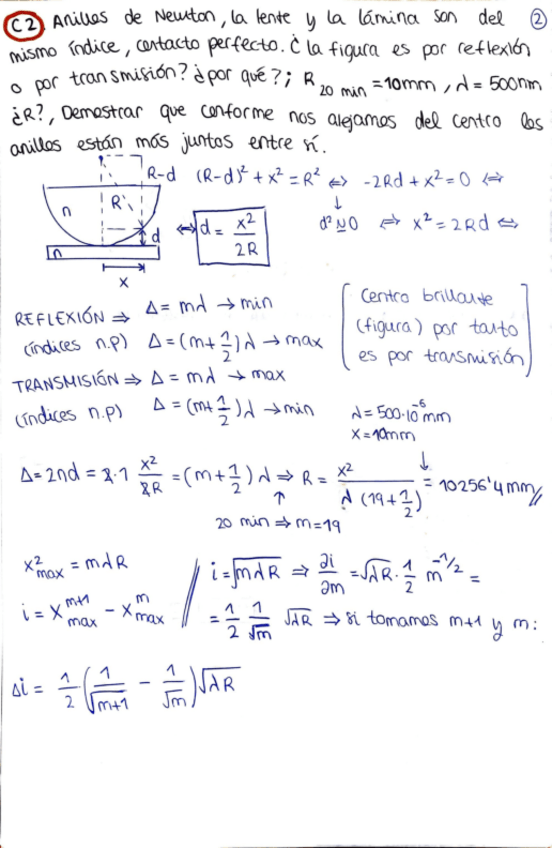 C2) Anillos de Newton, la lente y la lámina son del ②
mismo índice, contacto perfecto. ¿ la figura es por reflexión
o por transmisión? ¿por qué?; R 20 min = 10mm, λ = 500nm
¿R?, Demostrar que conforme nos alejamos del centro los
anillos están más juntos entre sí.
R-d (R-d)² + x² = R² ⇔ -2Rd + x² = 0 ⇔
n R d ⇔ d = x²/2R d² ≃ 0 ⇔ x² = 2Rd ⇔
n
x
REFLEXIÓN ⇒ Δ = mλ → min
(índices n.p) Δ = (m + 1/2) λ → max
[ Centro brillante
(figura) por tanto
es por transmisión ]
TRANSMISIÓN ⇒ Δ = mλ → max
(índices n.p) Δ = (m + 1/2) λ → min
λ = 500·10⁻⁶ mm
x = 10mm
Δ = 2nd = 2·1 x²/2R = (m + 1/2) λ ⇒ R = x²/λ (19 + 1/2) = 10256'4 mm //
20 min ⇒ m = 19
x²max = mλR
i = x^{m+1}max - x^{m}max // i = √mλR ⇒ ∂i/∂m = √λR · 1/2 m^{-1/2} =
= 1/2 1/√m √λR ⇒ si tomamos m+1 y m:
Δi = 1/2 (1/√m+1 - 1/√m) √λR